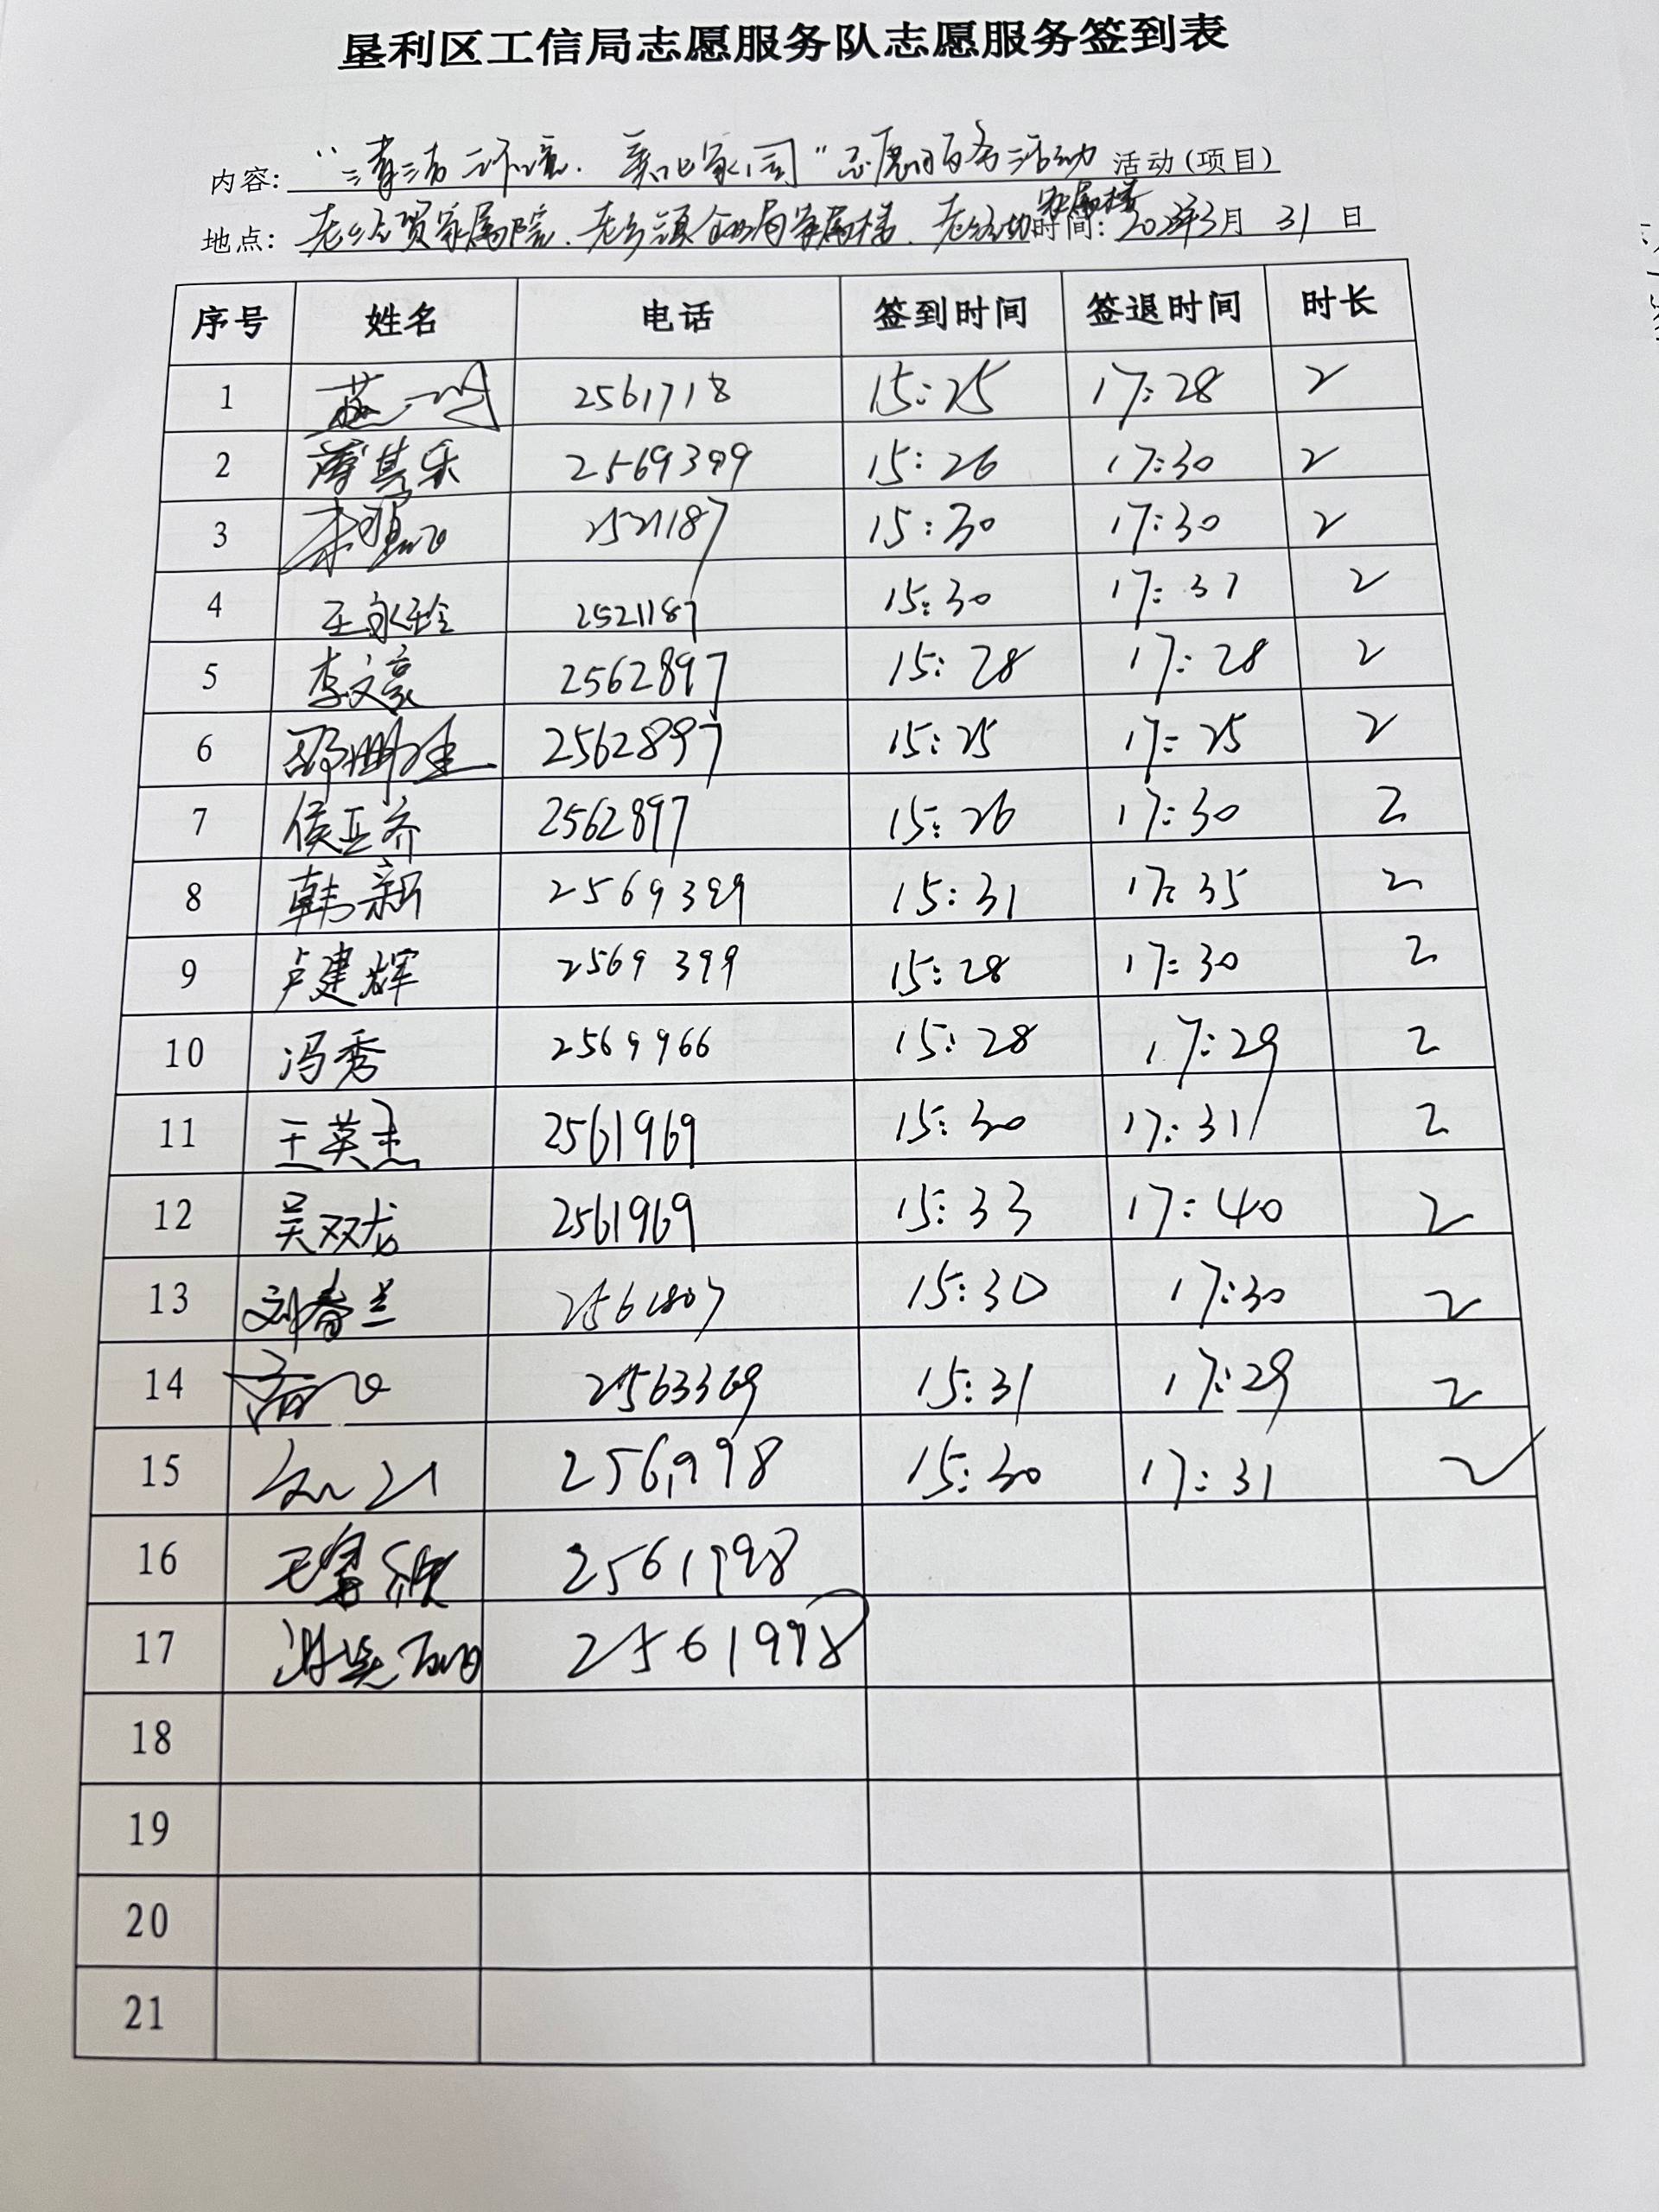 垦利区工信局志愿服务队志愿服务签到表
内容: "清洁环境,美化家园"志愿服务活动 活动(项目)
家属楼
地点: 老经贸家属院、老乡镇企业局家属楼、 时间: 2023年3月 31 日
序号 姓名 电话 签到时间 签退时间 时长
1 2561718 15:25 17:28 2
2 薄其乐 2569399 15:26 17:30 2
3 2521187 15:30 17:30 2
4 王永玲 2521187 15:30 17:31 2
5 李文豪 2562897 15:28 17:28 2
6 2562897 15:25 17:25 2
7 侯亚齐 2562897 15:26 17:30 2
8 韩新 2569399 15:31 17:35 2
9 卢建辉 2569399 15:28 17:30 2
10 冯秀 2569966 15:28 17:29 2
11 王英杰 2561969 15:30 17:31 2
12 吴双龙 2561969 15:33 17:40 2
13 刘春兰 2561807 15:30 17:30 2
14 2563369 15:31 17:29 2
15 2561998 15:30 17:31 2
16 2561998
17 2561998
18
19
20
21